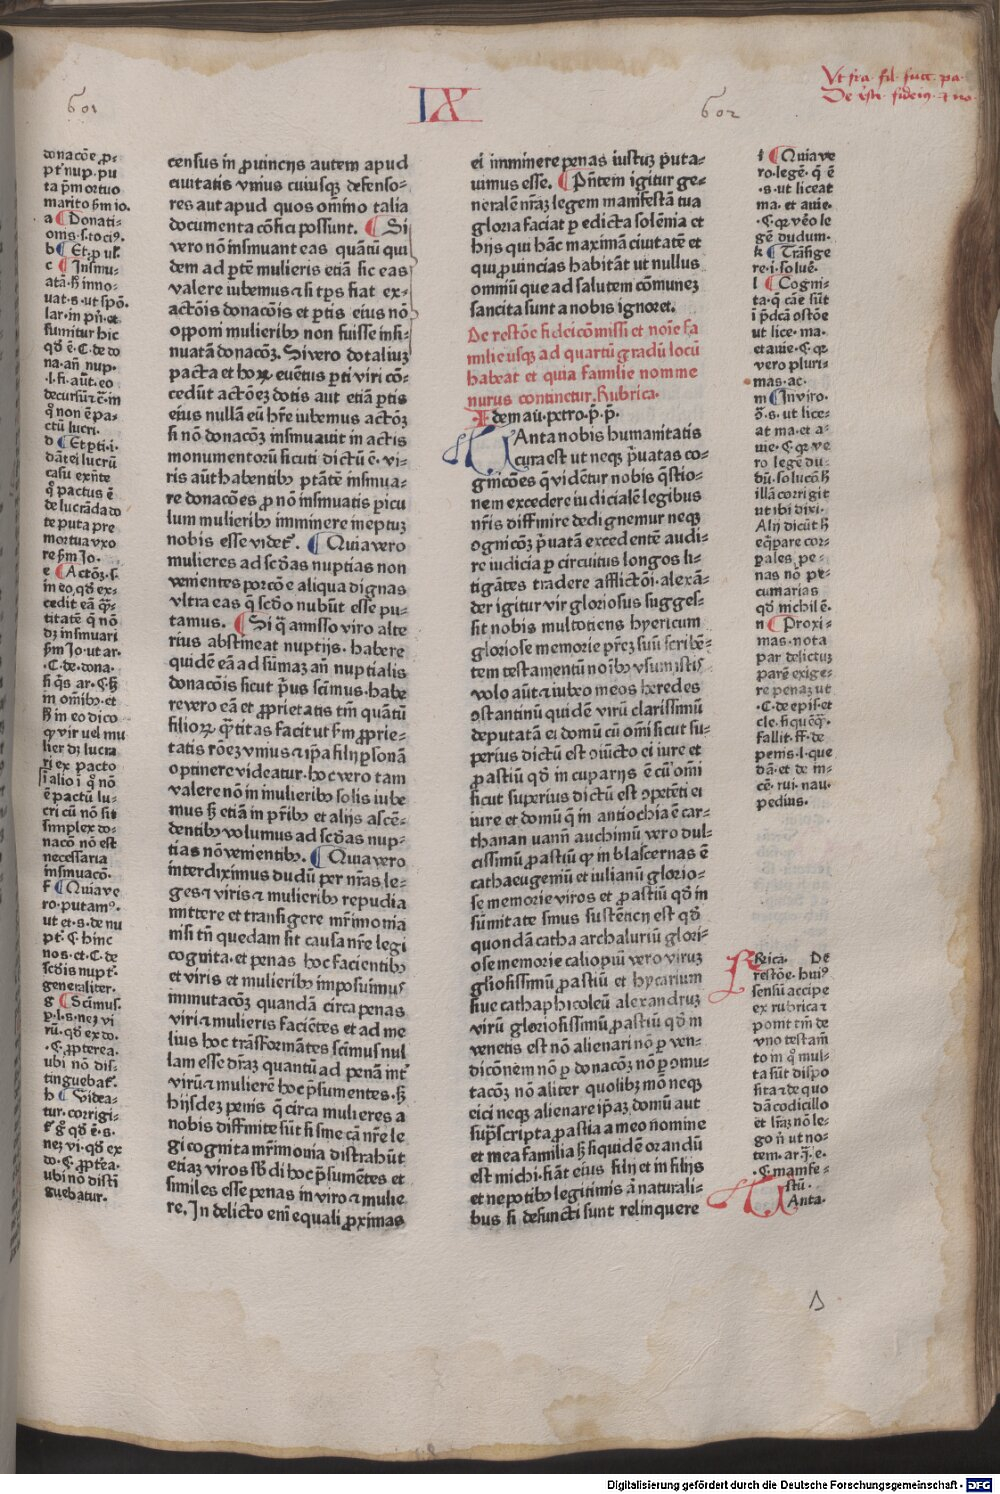 601
IX
602
Ut fra. fil. succ. pa.
De
donacōe ꝓ-
pt̄ nup. pu
ta p̄m ortuo
marito ẜm io.
a ¶ Donati-
onis. s. tociꝰ.
c ¶ Insinu-
ctū lucri.
dāt ei lucrū
casu exn̄te
ꝙ pactus ē
de lucrāda do
te puta pre
mortua vxo
re ẜm Jo.
e ¶ Actōꝫ. s.
in eo qd̄ ex-
cedit eā q̄-
titatē q̄ nō
dꝫ insinuari
ẜm Jo. ut ar.
.C. de. dona.
lier dꝫ lucra
ri ex pacto
ē pactū lu-
cri cū nō sit
simplex do-
nacō nō est
necessaria
insinuacō.
f ¶ Quia ve
ro. putamꝰ.
ut et. s. de nu
pt̄. C hinc
nos. et. C. de
scd̄is nupt̄.
generaliter.
g ¶ Scimus.
.C. ꝓpterea.
ubi nō dis-
tinguebat̄.
h ¶ Videa-
tur. corrigi-
ubi nō disti
guebatur.
census in ꝓuincijs autem apud
ciuitatis vnius cuiusqꝫ defenso-
res aut apud quos om̄ino talia
documenta cōfici possunt. ¶ Si
vero nō insinuant eas quātū qui
dem ad ꝑtē mulieris etiā sic eas
valere iubemus ⁊ si tp̄s fiat ex-
actōis donacōis et ꝑtis eius nō
opponi mulieribꝰ non fuisse insi-
nuatā donacōꝫ. Si vero dotaliuꝫ
pacta et hoꝝ euētus ꝑti viri cō-
cedūt actōeꝫ dotis aut etiā ꝑtis
eius nullā eū hr̄e iubemus actōꝫ
si nō donacōꝫ insinuauit in actis
monumentorū sicuti dictū ē. vi-
ris aūt habentibꝰ ptātē insinua-
re donacōes ꝓ nō insinuatis ꝑicu
lum mulieribꝰ imminere ineptuꝫ
nobis esse videt̄. ¶ Quia vero
mulieres ad scd̄as nuptias non
venientes porcōe aliqua dignas
vltra eas q̄ scd̄o nubūt esse pu-
tamus. ¶ Si q̄ amisso viro alte
rius abstineat nuptijs. habere
quidē eā ad sūmaꝫ an̄ nuptialis
donacōis sicut pꝰus scimus. habe
re vero eā et ꝓprietatis tm̄ quātū
filioꝝ q̄titas facit ut ẜm ꝓprie-
tatis rōeꝫ vnius ⁊ ip̄a filij ꝑsonā
optinere videatur. hoc vero tam
valere nō in mulieribꝰ solis iube
mus ꝫ etiā in pr̄ibꝰ et alijs ascē-
dentibꝰ volumus ad scd̄as nup-
tias nō venientibꝰ. ¶ Quia vero
interdiximus dudū per nr̄as le-
ges ⁊ viris ⁊ mulieribꝰ repudia
mittere et transigere mr̄imonia
nisi tn̄ quedam sit causa nr̄e legi
cognita. et penas hoc facientibꝰ
et viris et mulieribꝰ imposuimus
immutacōꝫ quandā circa penas
viri ⁊ mulieris faciētes et ad me
lius hoc trāsformātes scimus nul
lam esse dr̄aꝫ quantū ad penā int̄
virū ⁊ mulierē hoc p̄sumentes. ꝫ
hijsdeꝫ penis q̄ circa mulieres a
nobis diffinite sūt si sine cā nr̄e le
gi cognita mr̄imonia distrahūt
etiaꝫ viros sb̄di hoc p̄sumētes et
similes esse penas in viro ⁊ mulie
re. In delicto em̄ equali ꝓximas
ei imminere penas iustuꝫ puta-
uimus esse. ¶ Pn̄tem igitur ge-
neralē nr̄aꝫ legem manifestā tua
gloria faciat ꝑ edicta solēnia et
hijs qui hāc maximā ciuitatē et
qui ꝓuincias habitāt ut nullus
omniū que ad salutem cōmuneꝫ
sancita sunt a nobis ignoret.
De restōe fideicōmissi et noīe fa
milie usqꝫ ad quartū gradū locū
habeat et quia familie nomine
nurus continetur. Rubrica.
Idem au. petro. p. p.
TAnta nobis humanitatis
cura est ut neqꝫ p̄uatas co-
gnicōes q̄ vidētur nobis q̄stio-
nem excedere iudiciale legibus
nr̄is diffinire dedignemur neqꝫ
ꝯgnicōꝫ p̄uatā excedentē audi-
re iudicia ꝑ circuitus longos li-
tigātes tradere afflictōi. alexā-
der igitur vir gloriosus sugges-
sit nobis multociens hyericum
gloriose memorie pr̄eꝫ suū scribē-
tem testamentū
volo aūt ⁊ iubeo meos heredes
ꝯstantinū quidē virū clarissimū
deputatā ei domū cū om̄i sicut su-
perius dictū est ꝯiūcto ei iure et
ꝓastiū qd̄ in cuparijs ē cū om̄i
sicut superius dictū est ꝯpetēti ei
iure et domū q̄ in antiochia ē car-
thanan uann̄ auchimū vero dul-
cissimū ꝓastiū qꝫ in blascernas ē
catha eugemiū et iulianū glorio-
se memorie viros et ꝓastiū qd̄ in
sūmitate sinus sustēncꝫ est qd̄
quondā catha archaluriū glori-
ose memorie caliopiū vero viruꝫ
gliosissimū ꝓastiū et hycarium
siue catha phicoleū alexandruꝫ
virū gloriosissimū ꝓastiū qd̄ in
venetis est nō alienari nō ꝑ ven-
dicōnem nō ꝑ donacōꝫ nō ꝑ ꝯmu-
tacōꝫ nō aliter quolibꝫ mō neqꝫ
eici neqꝫ alienare ip̄aꝫ domū aut
sup̄scripta ꝓastia a meo nomine
et mea familia ꝫ siquidē oꝛandū
est michi. fiāt eius filij et in filijs
et nepotibꝰ legitimis ā naturali-
bus si defuncti sunt relinquere
i ¶ Quia ve
ro. legē. q̄ ē
.s. ut liceat
ma. et auie.
.C. qꝫ vēo le
gē dudum.
k ¶ Trāsige
re. i. soluē.
l ¶ Cogni-
ta. q̄ cāe sūt
ī p̄dcā ꝯstōe
ut lice. ma.
et auie. C. qꝫ
vero pluri-
mas. ac.
m ¶ In viro.
ō. s. ut lice-
at ma. et a-
uie. C. qꝫ ve
ro legē du-
dū. solucō ꝫ
illā corrigit
ut ibi dixi.
Alij dicūt ꝫ
eq̄pare cor-
ꝑales pe-
nas nō pe-
cuniarias
qd̄ nichil ē.
n ¶ Proxi-
mas. nota
par delictuꝫ
parē exige-
re penaꝫ ut
.C. de epis. et
cle. si quēq̄.
fallit. ff. de
penis. l. que
dā. et de in-
cē. rui. nau.
pedius.
Rrica. De
restōe. huiꝰ
sensū accipe
ex rubrica ⁊
ponit tm̄ de
vno testam̄
to in ꝙ mul-
ta sūt dispo
sita ⁊ de quo
dā codicillo
et lr̄aꝫ nō le-
go n̄ ut no-
tem. ar. q̄. e.
.C. manife-
stū.
TAnta.
Digitalisierung gefördert durch die Deutsche Forschungsgemeinschaft - DFG